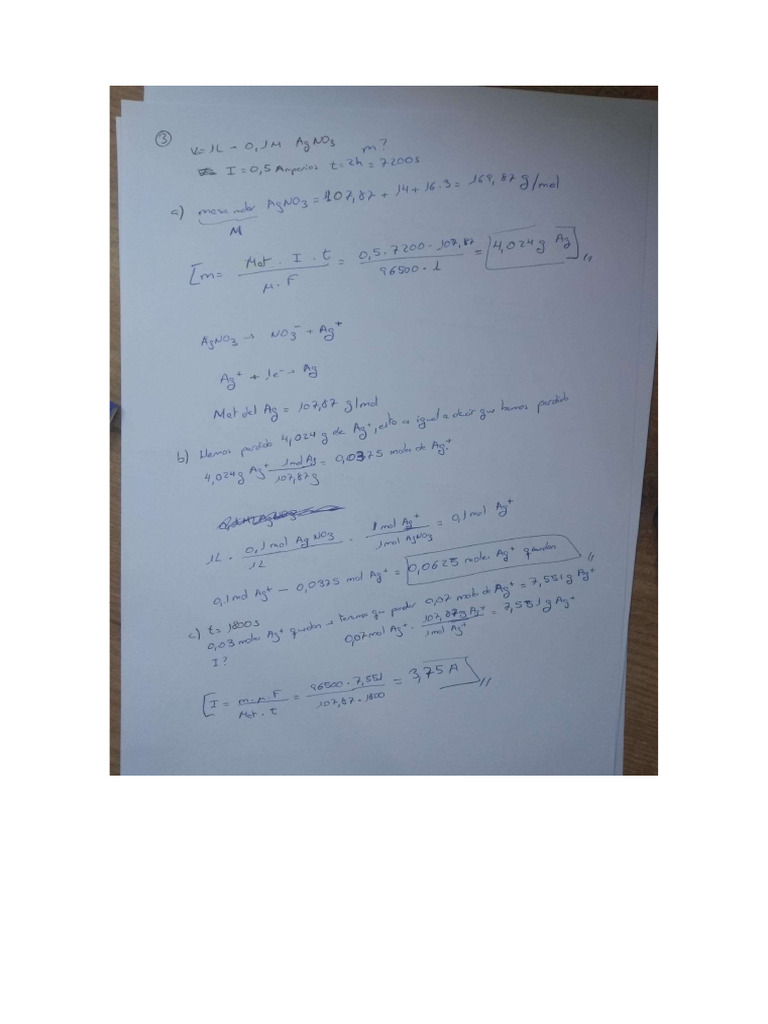 ③
V=1L - 0,1M AgNO₃ m?
I=0,5 Amperios t=2h=7200s
a) masa molar AgNO₃ = 107,87 + 14 + 16·3 = 169,87 g/mol
M
[m= Mat · I · t / n · F = 0,5 · 7200 · 107,87 / 96500 · 1 = 4,024 g Ag],,
AgNO₃ → NO₃⁻ + Ag⁺
Ag⁺ + 1e⁻ → Ag
Mat del Ag = 107,87 g/mol
b) Hemos perdido 4,024 g de Ag⁺, esto es igual a decir que hemos perdido
4,024g Ag⁺ 1mol Ag / 107,87g = 0,0375 moles de Ag⁺.
1L · 0,1 mol AgNO₃ / 1L · 1 mol Ag⁺ / 1mol AgNO₃ = 0,1 mol Ag⁺
0,1 mol Ag⁺ - 0,0375 mol Ag⁺ = 0,0625 moles Ag⁺ quedan,,
c) t= 1800s
0,03 moles Ag⁺ quedan → tenemos que perder 0,07 moles de Ag⁺ = 7,551g Ag⁺
I? 0,07 mol Ag⁺ · 107,87g Ag⁺ / 1mol Ag⁺ = 7,551 g Ag⁺
[I = m·n·F / Mat · t = 96500 · 7,551 / 107,87 · 1800 = 3,75 A],,